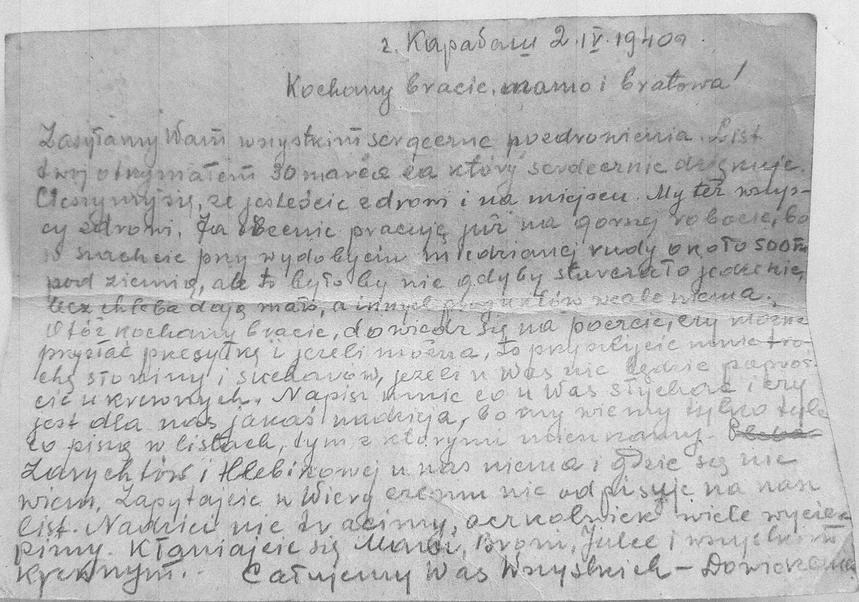 г. Карабаш 2.IV.1940г.
Kochany bracie, mamo i bratowa!
Zasyłamy Wam wszystkim serdeczne pozdrowienia. List
twój otrzymałem 30 marca za który serdecznie dziękuję.
Cieszymy się, że jesteście zdrowi i na miejscu. My też wszys-
cy zdrowi. Ja obecnie pracuję już na górnej robocie, bo
w szachcie przy wydobyciu miedzianej rudy około 500m
pod ziemią, ale to było by nic gdyby starczało jedzenie,
lecz chleba dają mało, a innych produktów wcale niema.
Otóż kochany bracie, dowiedz się na poczcie, czy można
przysłać przesyłkę i jeżeli można, to przyślijcie mnie tro-
chę słoniny i sucharów, jeżeli u Was nie będzie poproś-
cie u krewnych. Napisz mnie co u Was słychać i czy
jest dla nas jakaś nadzieja, bo my wiemy tylko tyle
co piszą w listach, tym z którymi mieszkamy.
Zarychtów i Hlebikowej u nas niema i gdzie są nie
wiem. Zapytajcie u Wiery czemu nie odpisuje na nasz
list. Nadziei nie tracimy, aczkolwiek wiele wycier-
pimy. Kłaniajcie się Broni, Julce i wszystkim
krewnym. Całujemy Was Wszystkich – Dowidzenia